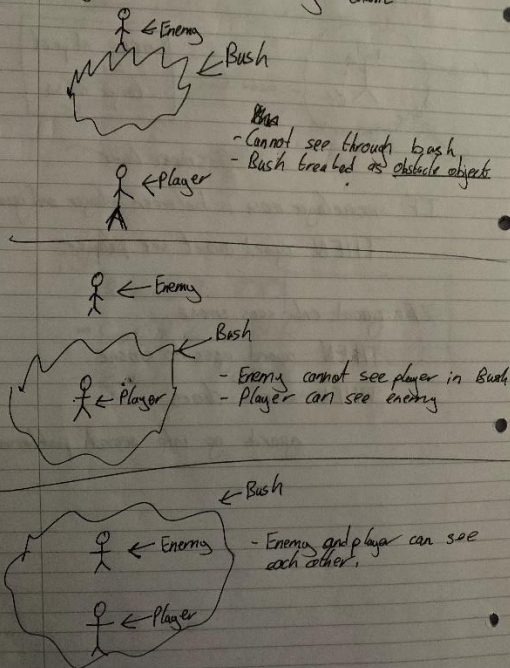 Enemy
Bush
- Cannot see through bush
- Bush treated as obstacle object
Player
Enemy
Bush
- Enemy cannot see player in Bush
Player
- Player can see enemy
Bush
Enemy
- Enemy and player can see
each other.
Player